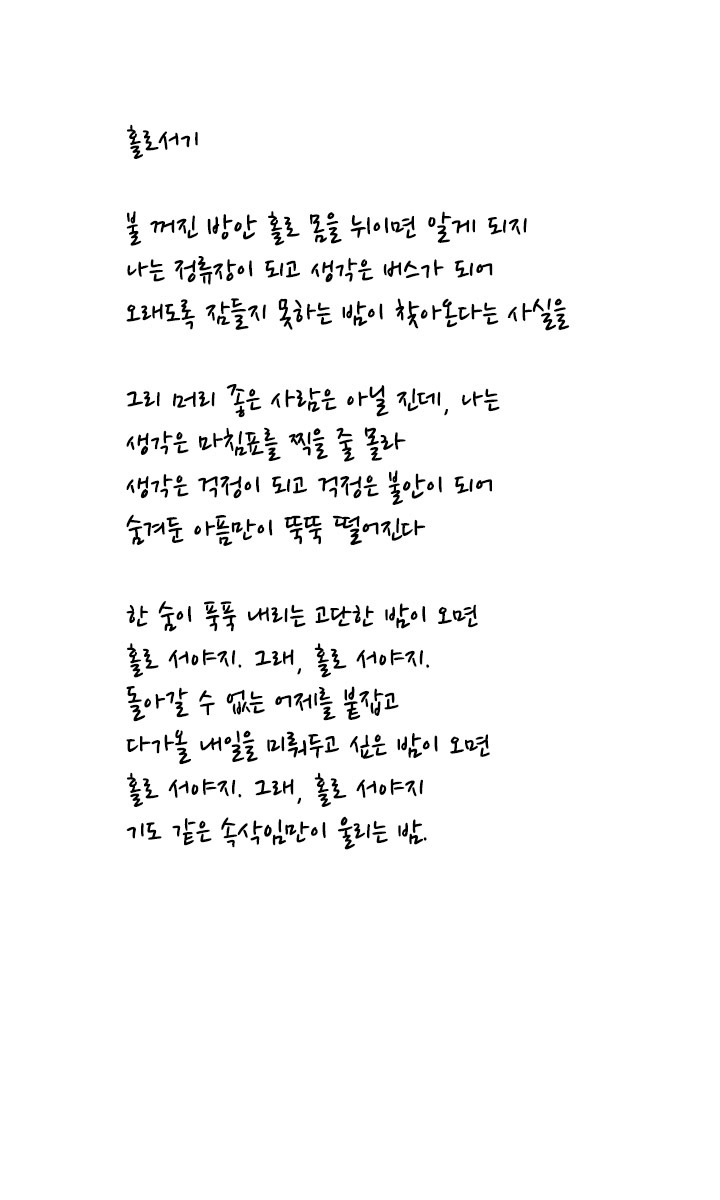 홀로서기
불 꺼진 방안 홀로 몸을 뉘이면 알게 되지
나는 정류장이 되고 생각은 버스가 되어
오래도록 잠들지 못하는 밤이 찾아온다는 사실을
그리 머리 좋은 사람은 아닐 진데, 나는
생각은 마침표를 찍을 줄 몰라
생각은 걱정이 되고 걱정은 불안이 되어
숨겨둔 아픔만이 뚝뚝 떨어진다
한 숨이 푹푹 내리는 고단한 밤이 오면
홀로 서야지. 그래, 홀로 서야지.
돌아갈 수 없는 어제를 붙잡고
다가올 내일을 미뤄두고 싶은 밤이 오면
홀로 서야지. 그래, 홀로 서야지
기도 같은 속삭임만이 울리는 밤.